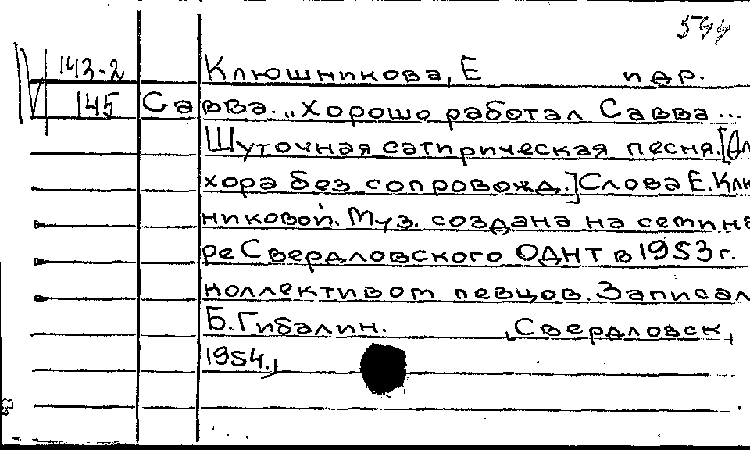 544
143-2 Клюшникова, Е и др.
145 Савва. „Хорошо работал Савва...
Шуточная сатирическая песня. [Дл
хора без сопровожд.] Слова Е. Клю
никовой. Муз. создана на семина
ре Свердловского ОДНТ в 1953 г.
коллективом певцов. Записал
Б. Гибалин. [Свердловск,
1954.]